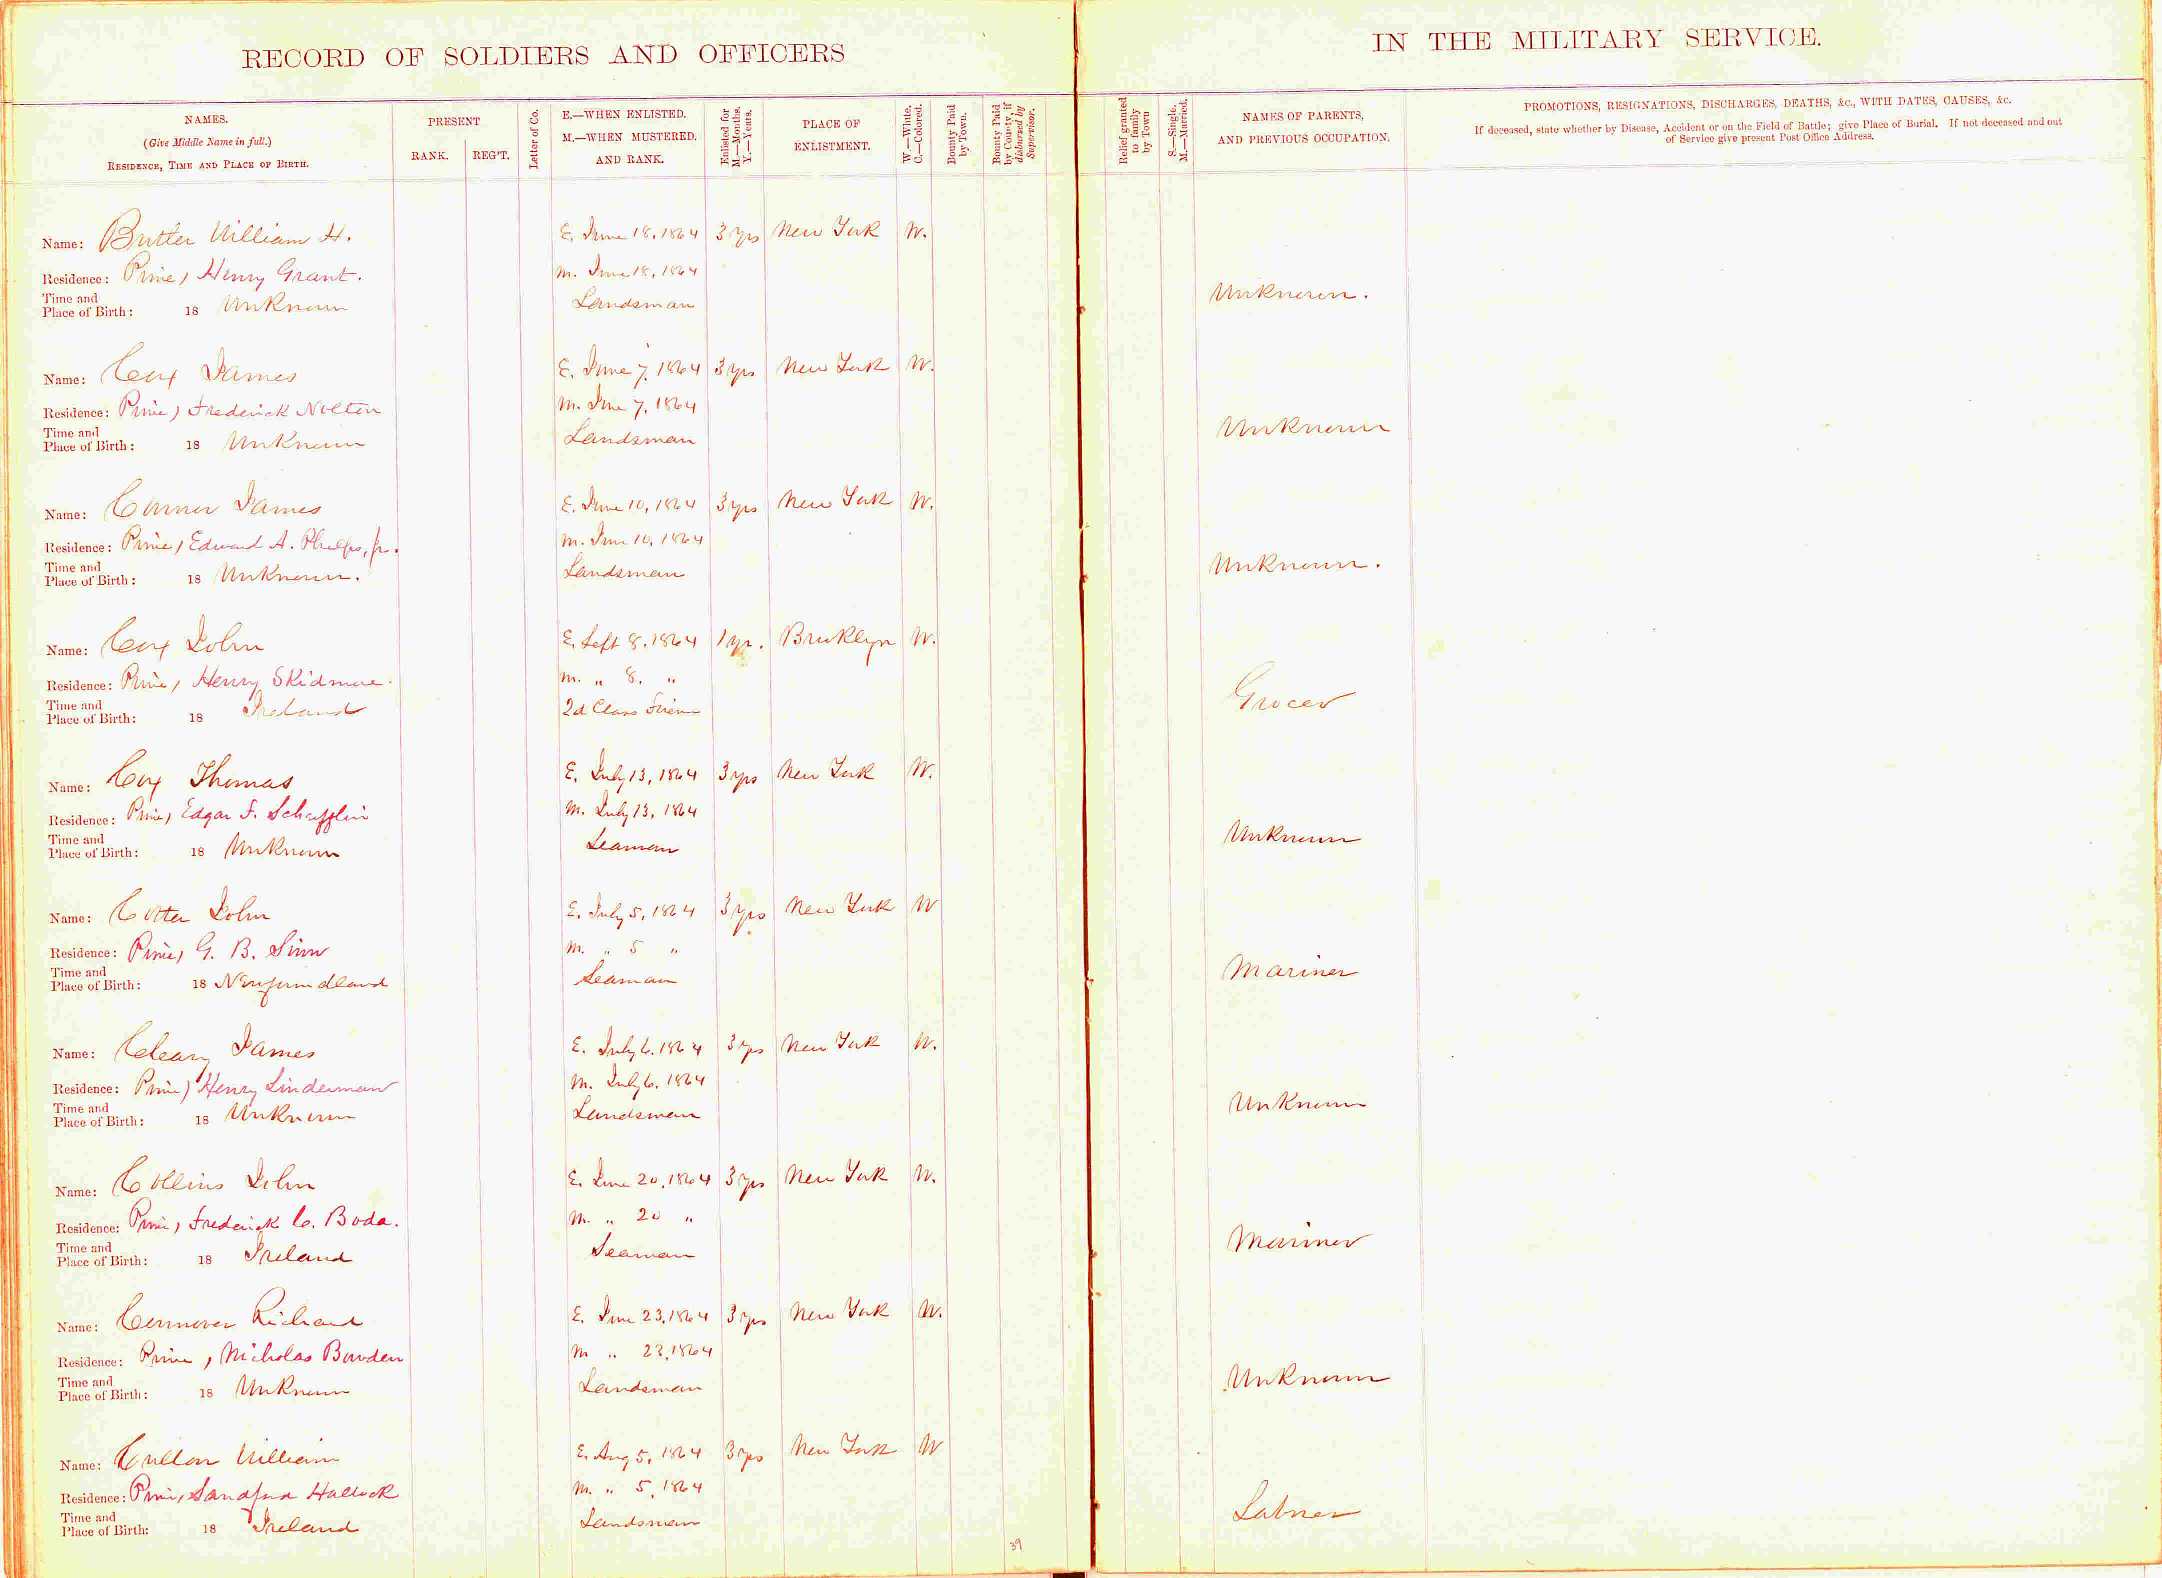 RECORD OF SOLDIERS AND OFFICERS
IN THE MILITARY SERVICE.
NAMES.
(Give Middle Name in full.)
RESIDENCE, TIME AND PLACE OF BIRTH.
PRESENT
RANK.
REG'T.
Letter of Co.
E.—WHEN ENLISTED.
M.—WHEN MUSTERED.
AND RANK.
Enlisted for
M.—Months.
Y.—Years.
PLACE OF
ENLISTMENT.
W.—White.
C.—Colored.
Bounty Paid
by Town.
Bounty Paid
by County, if
disbursed by
Supervisor.
Relief granted
to family
by Town
S.—Single.
M.—Married.
NAMES OF PARENTS,
AND PREVIOUS OCCUPATION.
PROMOTIONS, RESIGNATIONS, DISCHARGES, DEATHS, &c., WITH DATES, CAUSES, &c.
If deceased, state whether by Disease, Accident or on the Field of Battle; give Place of Burial. If not deceased and out
of Service give present Post Office Address.
Name: Butler William H. E. June 18, 1864 3 yrs New York W.
Residence: Prin, Henry Grant. M. June 18, 1864
Time and
Place of Birth: 18 Unknown Landsman Unknown.
Name: Cox James E. June 7, 1864 3 yrs New York W.
Residence: Prin, Frederick Nolten M. June 7, 1864
Time and
Place of Birth: 18 Unknown Landsman Unknown
Name: James E. June 10, 1864 3 yrs New York W.
Residence: Prin, Edward A. Phelps, Jr. M. June 10, 1864
Time and
Place of Birth: 18 Unknown. Landsman Unknown.
Name: Cox John E. Sept 8, 1864 1 yr. Brooklyn W.
Residence: Prin, Henry Skidmore. M. " 8. "
Time and
Place of Birth: 18 Ireland 2d Class Grocer
Name: Cox Thomas E. July 13, 1864 3 yrs New York W.
Residence: Prin, Edgar F. M. July 13, 1864
Time and
Place of Birth: 18 Unknown Seaman Unknown
Name: Cotter John E. July 5, 1864 3 yrs New York W
Residence: Prin, G. B. M. " 5 "
Time and
Place of Birth: 18 Newfoundland Seaman Mariner
Name: Cleary James E. July 6, 1864 3 yrs New York W.
Residence: Prin, Henry Linderman M. July 6, 1864
Time and
Place of Birth: 18 Unknown Landsman Unknown
Name: Collins John E. June 20, 1864 3 yrs New York W.
Residence: Prin, Frederick C. Boda. M. " 20 "
Time and
Place of Birth: 18 Ireland Seaman Mariner
Name: Richard E. June 23, 1864 3 yrs New York W.
Residence: Prin, Nicholas Bowden M " 23, 1864
Time and
Place of Birth: 18 Unknown Landsman Unknown
Name: William E. Aug 5, 1864 3 yrs New York W
Residence: Prin, Sandford Hallock M. " 5, 1864
Time and
Place of Birth: 18 Ireland Landsman Laborer
39